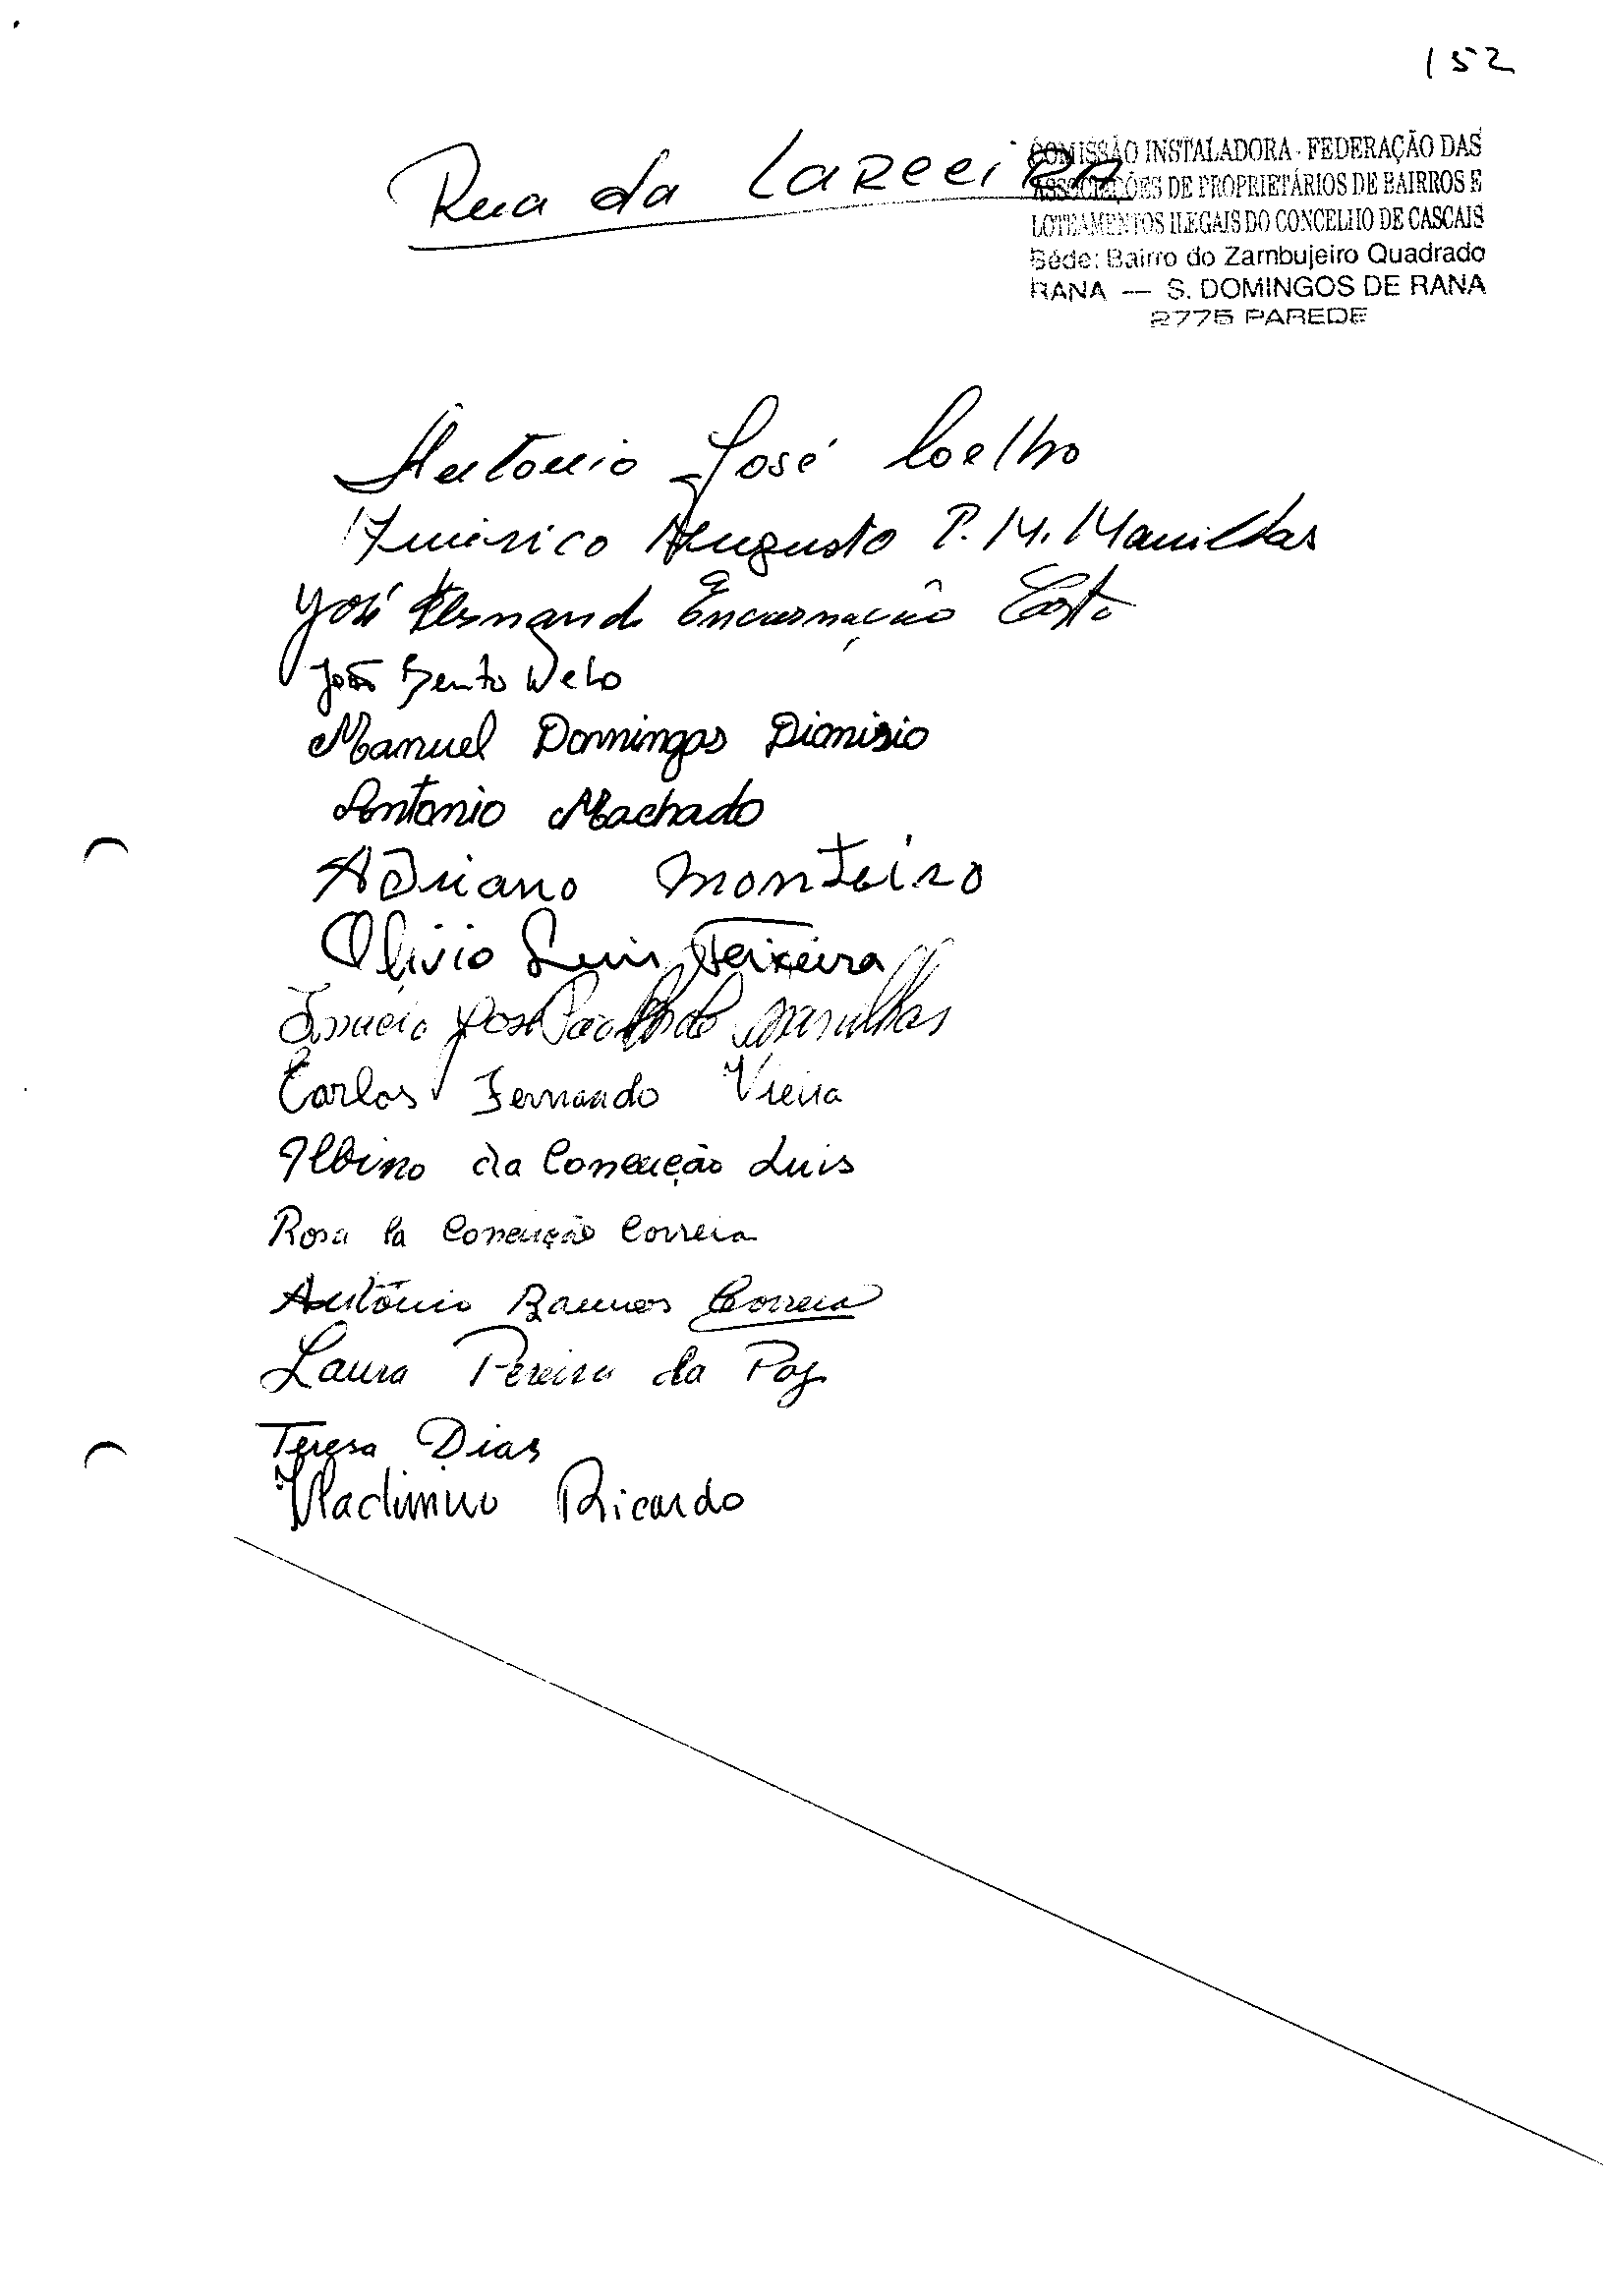 152
Rua da Lapeeira
COMISSÃO INSTALADORA - FEDERAÇÃO DAS
ASSOCIAÇÕES DE PROPRIETÁRIOS DE BAIRROS E
LOTEAMENTOS ILEGAIS DO CONCELHO DE CASCAIS
Séde: Bairro do Zambujeiro Quadrado
RANA — S. DOMINGOS DE RANA
2775 PAREDE
Antonio José Coelho
Américo Augusto P. M. Manilhas
José Fernando Encarnação Costa
João Bento Melo
Manuel Domingos Dionisio
Antonio Machado
Adriano Monteiro
Olivio Luis Teixeira
José Manilhas
Carlos Fernando Vieira
Albino da Conceição Luis
Rosa da Conceição Correia
António Correia
Laura Pereira da Paz
Teresa Dias
Vladimiro Ricardo